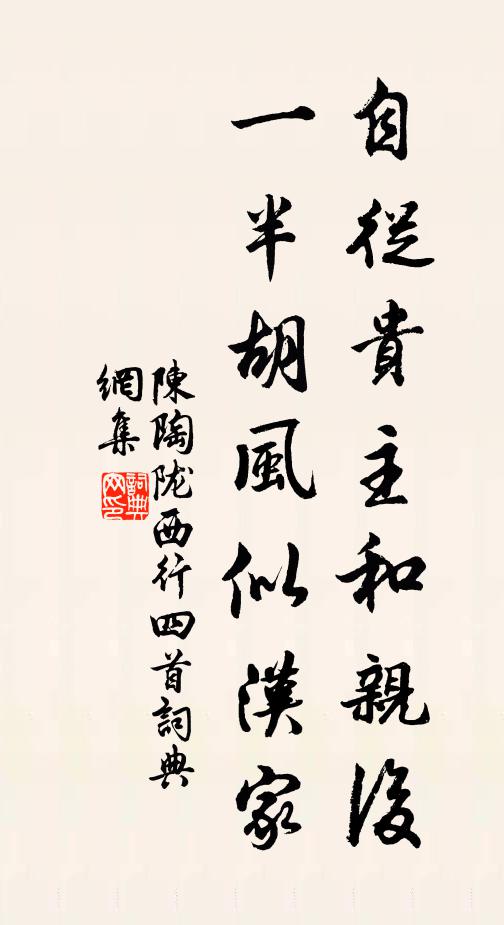 自從貴主和親後
一半胡風似漢家
陳陶陇西行四首詞典
網集
詞典
网印